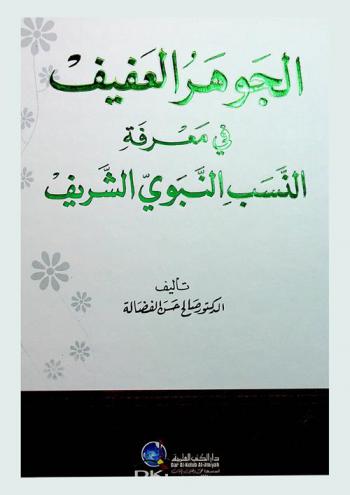 الجَوهَرُ العَفيفْ
في مَعْرفَةِ
النَّسَبِ النَّبَويّ الشَّريفْ
تأليف
الدكتور صالح حسن الفضالة
دار الكتب العلمية
Dar Al-Kotob Al-ilmiyah
DKi